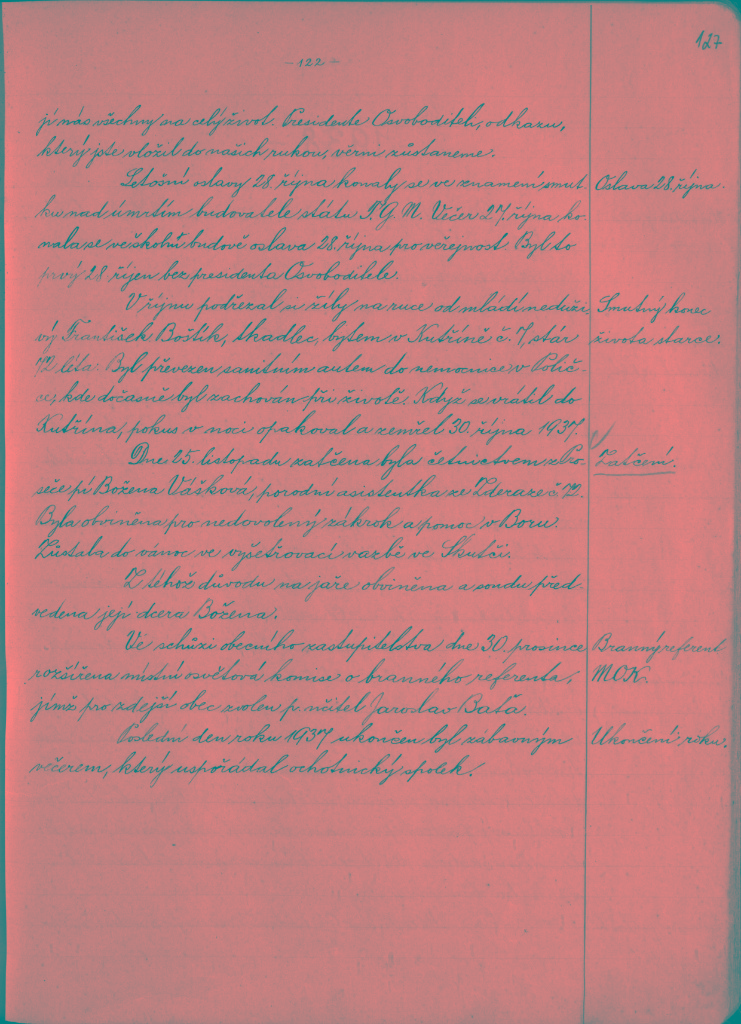 127
- 122 -
jí nás všechny na celý život. Presidente Osvoboditeli, odkazu,
který jste vložil do našich rukou, věrni zůstaneme.
Letošní oslavy 28. října konaly se ve znamení smut-
Oslava 28. října.
ku nad úmrtím budovatele státu T. G. M. Večer 27. října, ko-
nala se ve školní budově oslava 28. října pro veřejnost. Byl to
prvý 28. říjen bez presidenta Osvoboditele.
V říjnu podřezal si žíly na ruce od mládí neduži-
Smutný konec
vý František Boštík, tkadlec, bytem v Kutříně č. 7, stár
života starce.
72 léta. Byl převezen sanitním autem do nemocnice v Polič-
ce, kde dočasně byl zachován při životě. Když se vrátil do
Kutřína, pokus v noci opakoval a zemřel 30. října 1937.
Dne 25. listopadu zatčena byla četnictvem z Pro-
Zatčení.
seče pí Božena Vášková, porodní asistentka ze Zderaze č. 72.
Byla obviněna pro nedovolený zákrok a pomoc v Boru.
Zůstala do vánoc ve vyšetřovací vazbě ve Skutči.
Z téhož důvodu na jaře obviněna a soudu před-
vedena její dcera Božena.
Ve schůzi obecního zastupitelstva dne 30. prosince
Branný referent
rozšířena místní osvětová komise o branného referenta,
MOK.
jímž pro zdejší obec zvolen p. učitel Jaroslav Bata.
Poslední den roku 1937 ukončen byl zábavným
Ukončení roku.
večerem, který uspořádal ochotnický spolek.